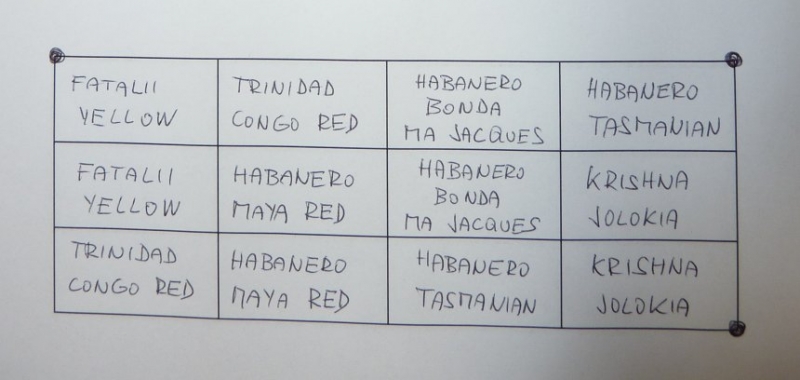 FATALII
YELLOW
TRINIDAD
CONGO RED
HABANERO
BONDA
MA JACQUES
HABANERO
TASMANIAN
FATALII
YELLOW
HABANERO
MAYA RED
HABANERO
BONDA
MA JACQUES
KRISHNA
JOLOKIA
TRINIDAD
CONGO RED
HABANERO
MAYA RED
HABANERO
TASMANIAN
KRISHNA
JOLOKIA